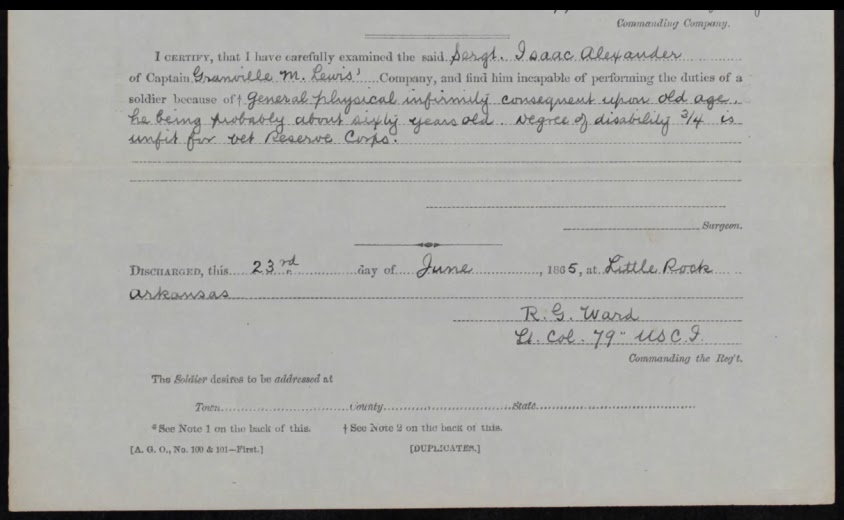 Commanding Company.
I CERTIFY, that I have carefully examined the said Sergt. Isaac Alexander
of Captain Granville M. Lewis' Company, and find him incapable of performing the duties of a
soldier because of† General physical infirmity consequent upon old age.
he being probably about sixty years old. Degree of disability 3/4 is
unfit for vet Reserve Corps.
Surgeon.
DISCHARGED, this 23rd day of June, 1865, at Little Rock
Arkansas
R. G. Ward
Lt. Col. 79" USC.I.
Commanding the Reg't.
The Soldier desires to be addressed at
Town County State
*See Note 1 on the back of this. †See Note 2 on the back of this.
[A. G. O., No. 100 & 101—First.] [DUPLICATES.]